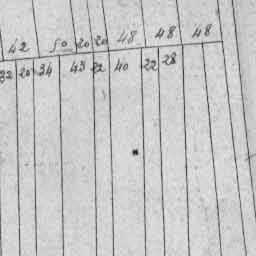 42 50 20 20 48 48 48
32 20 34 43 22 40 22 28